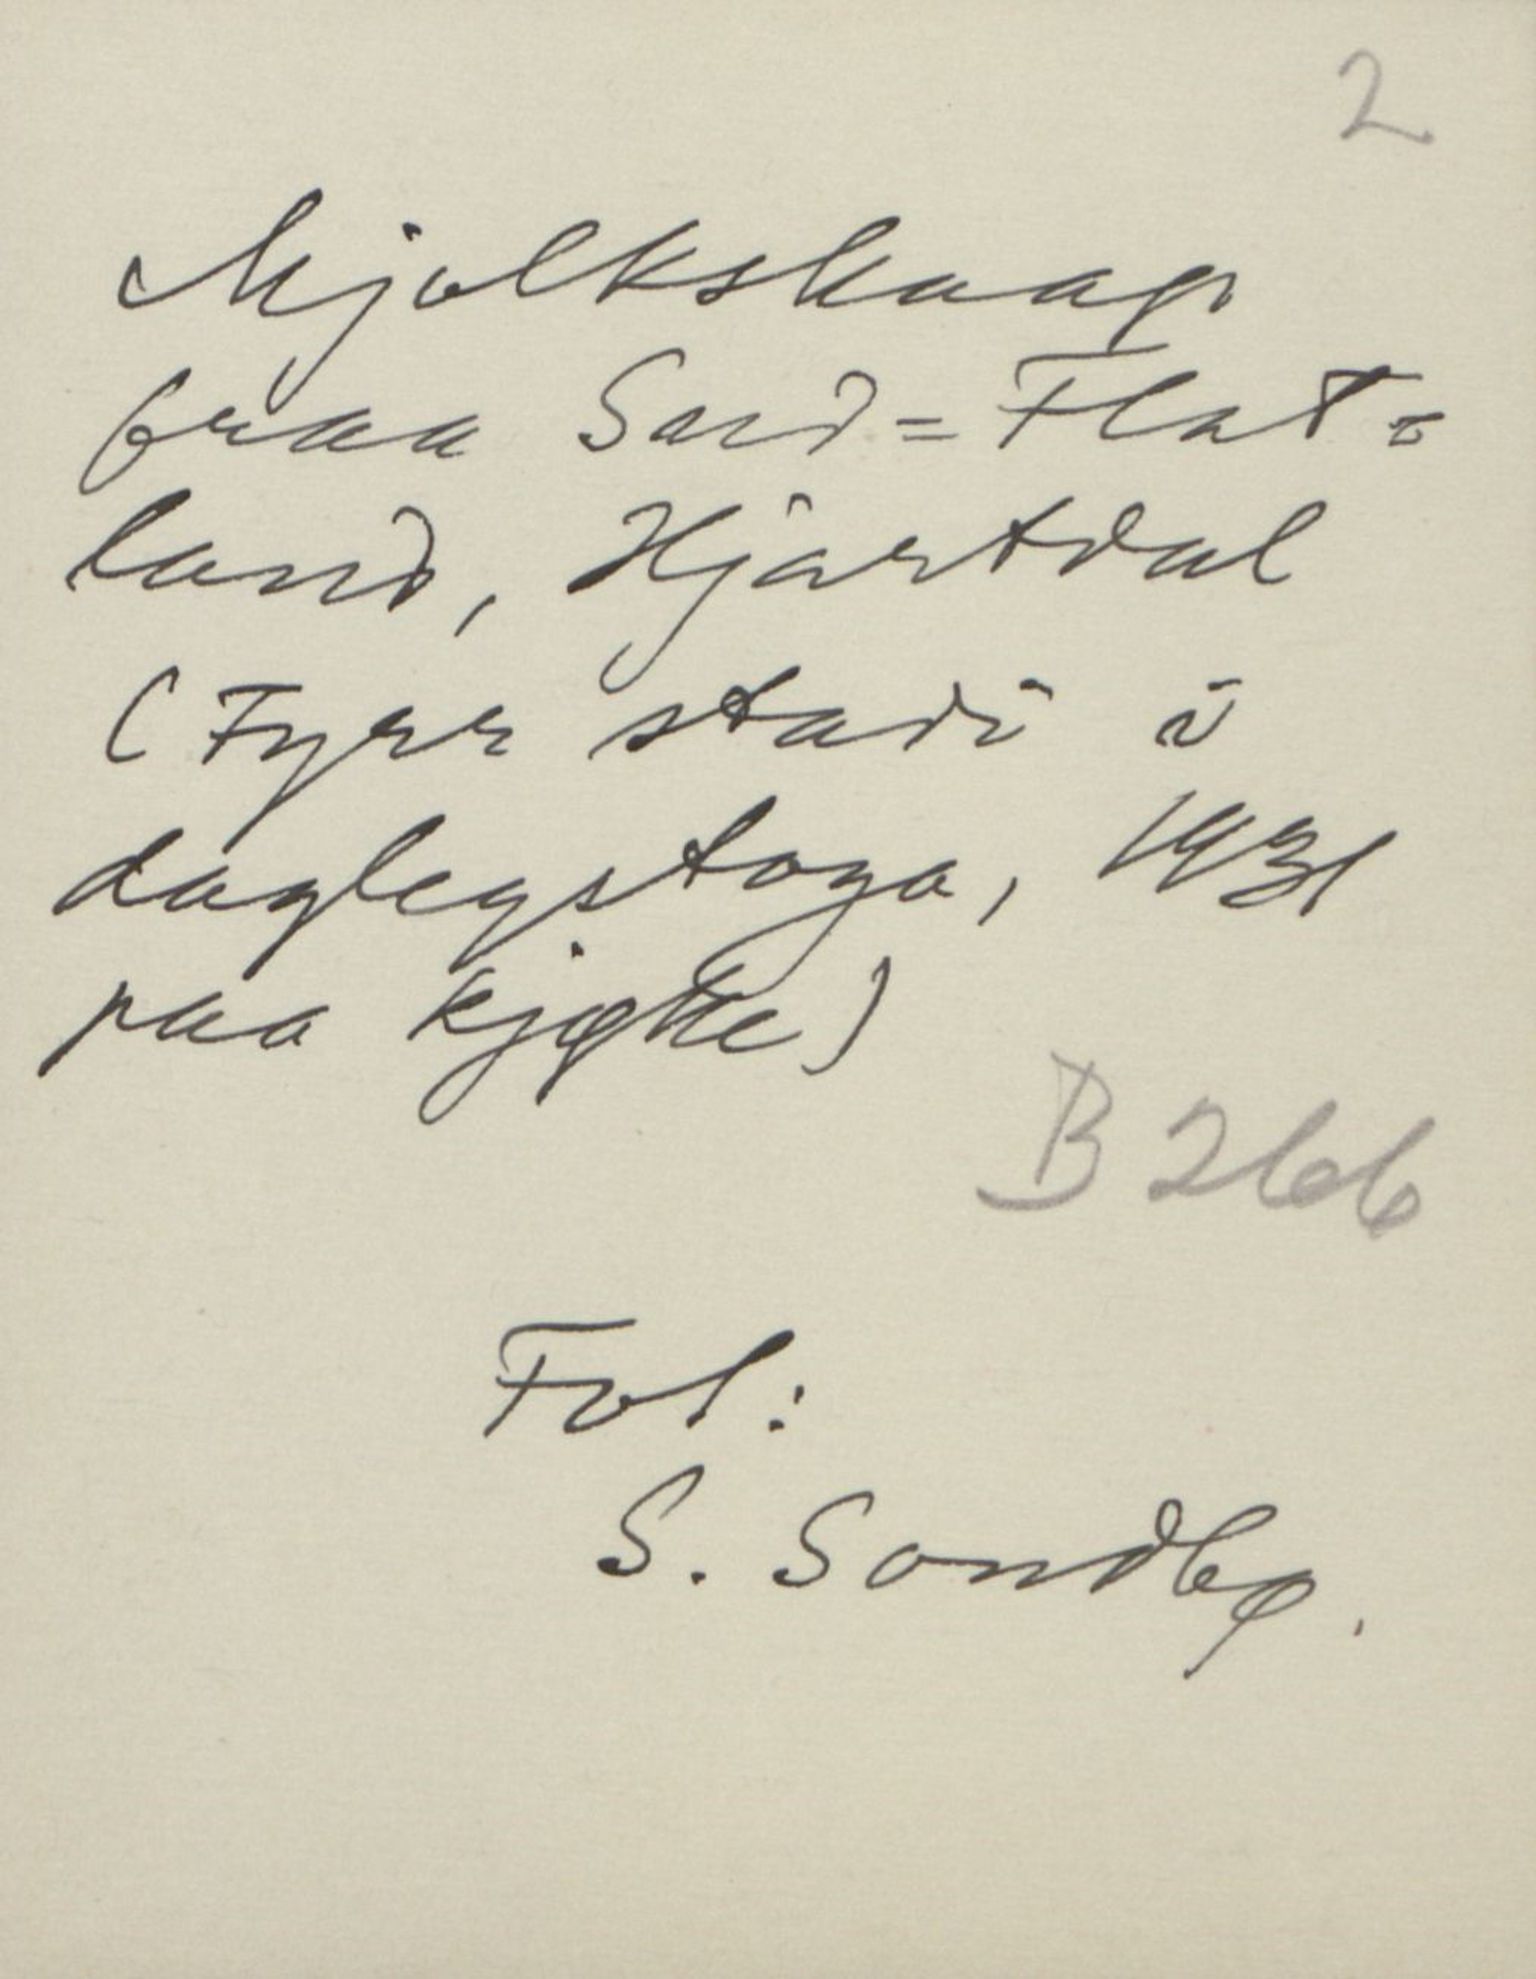 2
Mjolkskaap
fraa Sud=Flat=
land, Hjartdal
(Fyrr stadi i
daglegstoga, 1931
paa kjøkke)
B 266
Fot:
S. Sondbø.